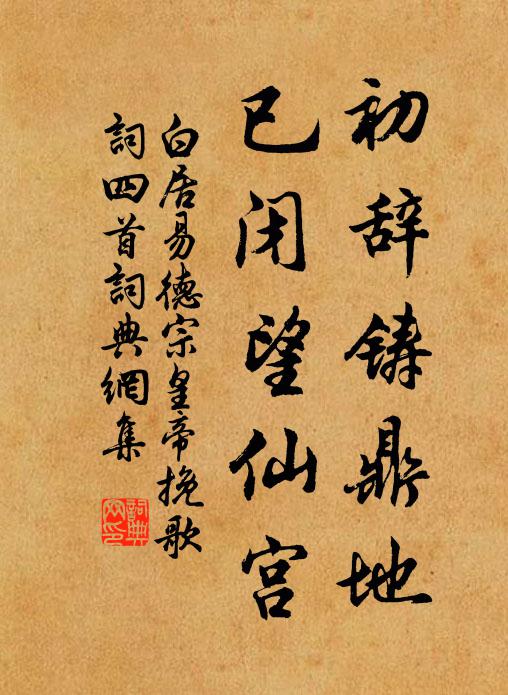 初辞铸鼎地
已闭望仙宫
白居易德宗皇帝挽歌
詞四首詞典網集
詞典网印